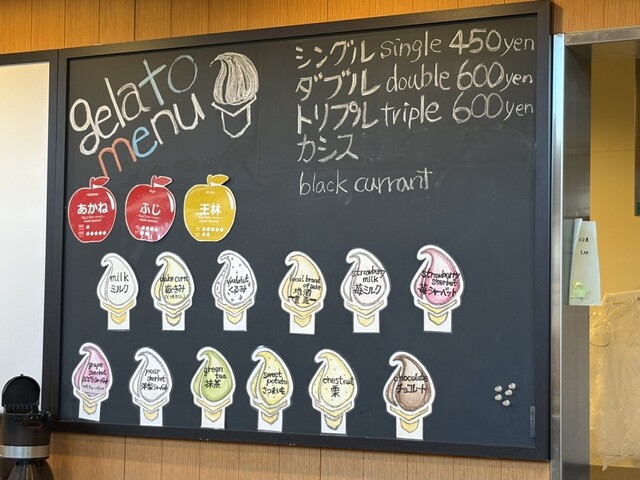 gelato
menu
シングル single 450yen
ダブル double 600yen
トリプル triple 600yen
カシス
black currant
あかね
ふじ
王林
milk
ミルク
walnut
くるみ
local brand
of sake
地酒
strawberry
milk
苺ミルク
strawberry
sherbet
苺シャーベット
grape
sherbet
pear
sherbet
洋梨シャーベット
green
tea
抹茶
sweet
potato
さつまいも
chestnut
栗
chocolate
チョコレート